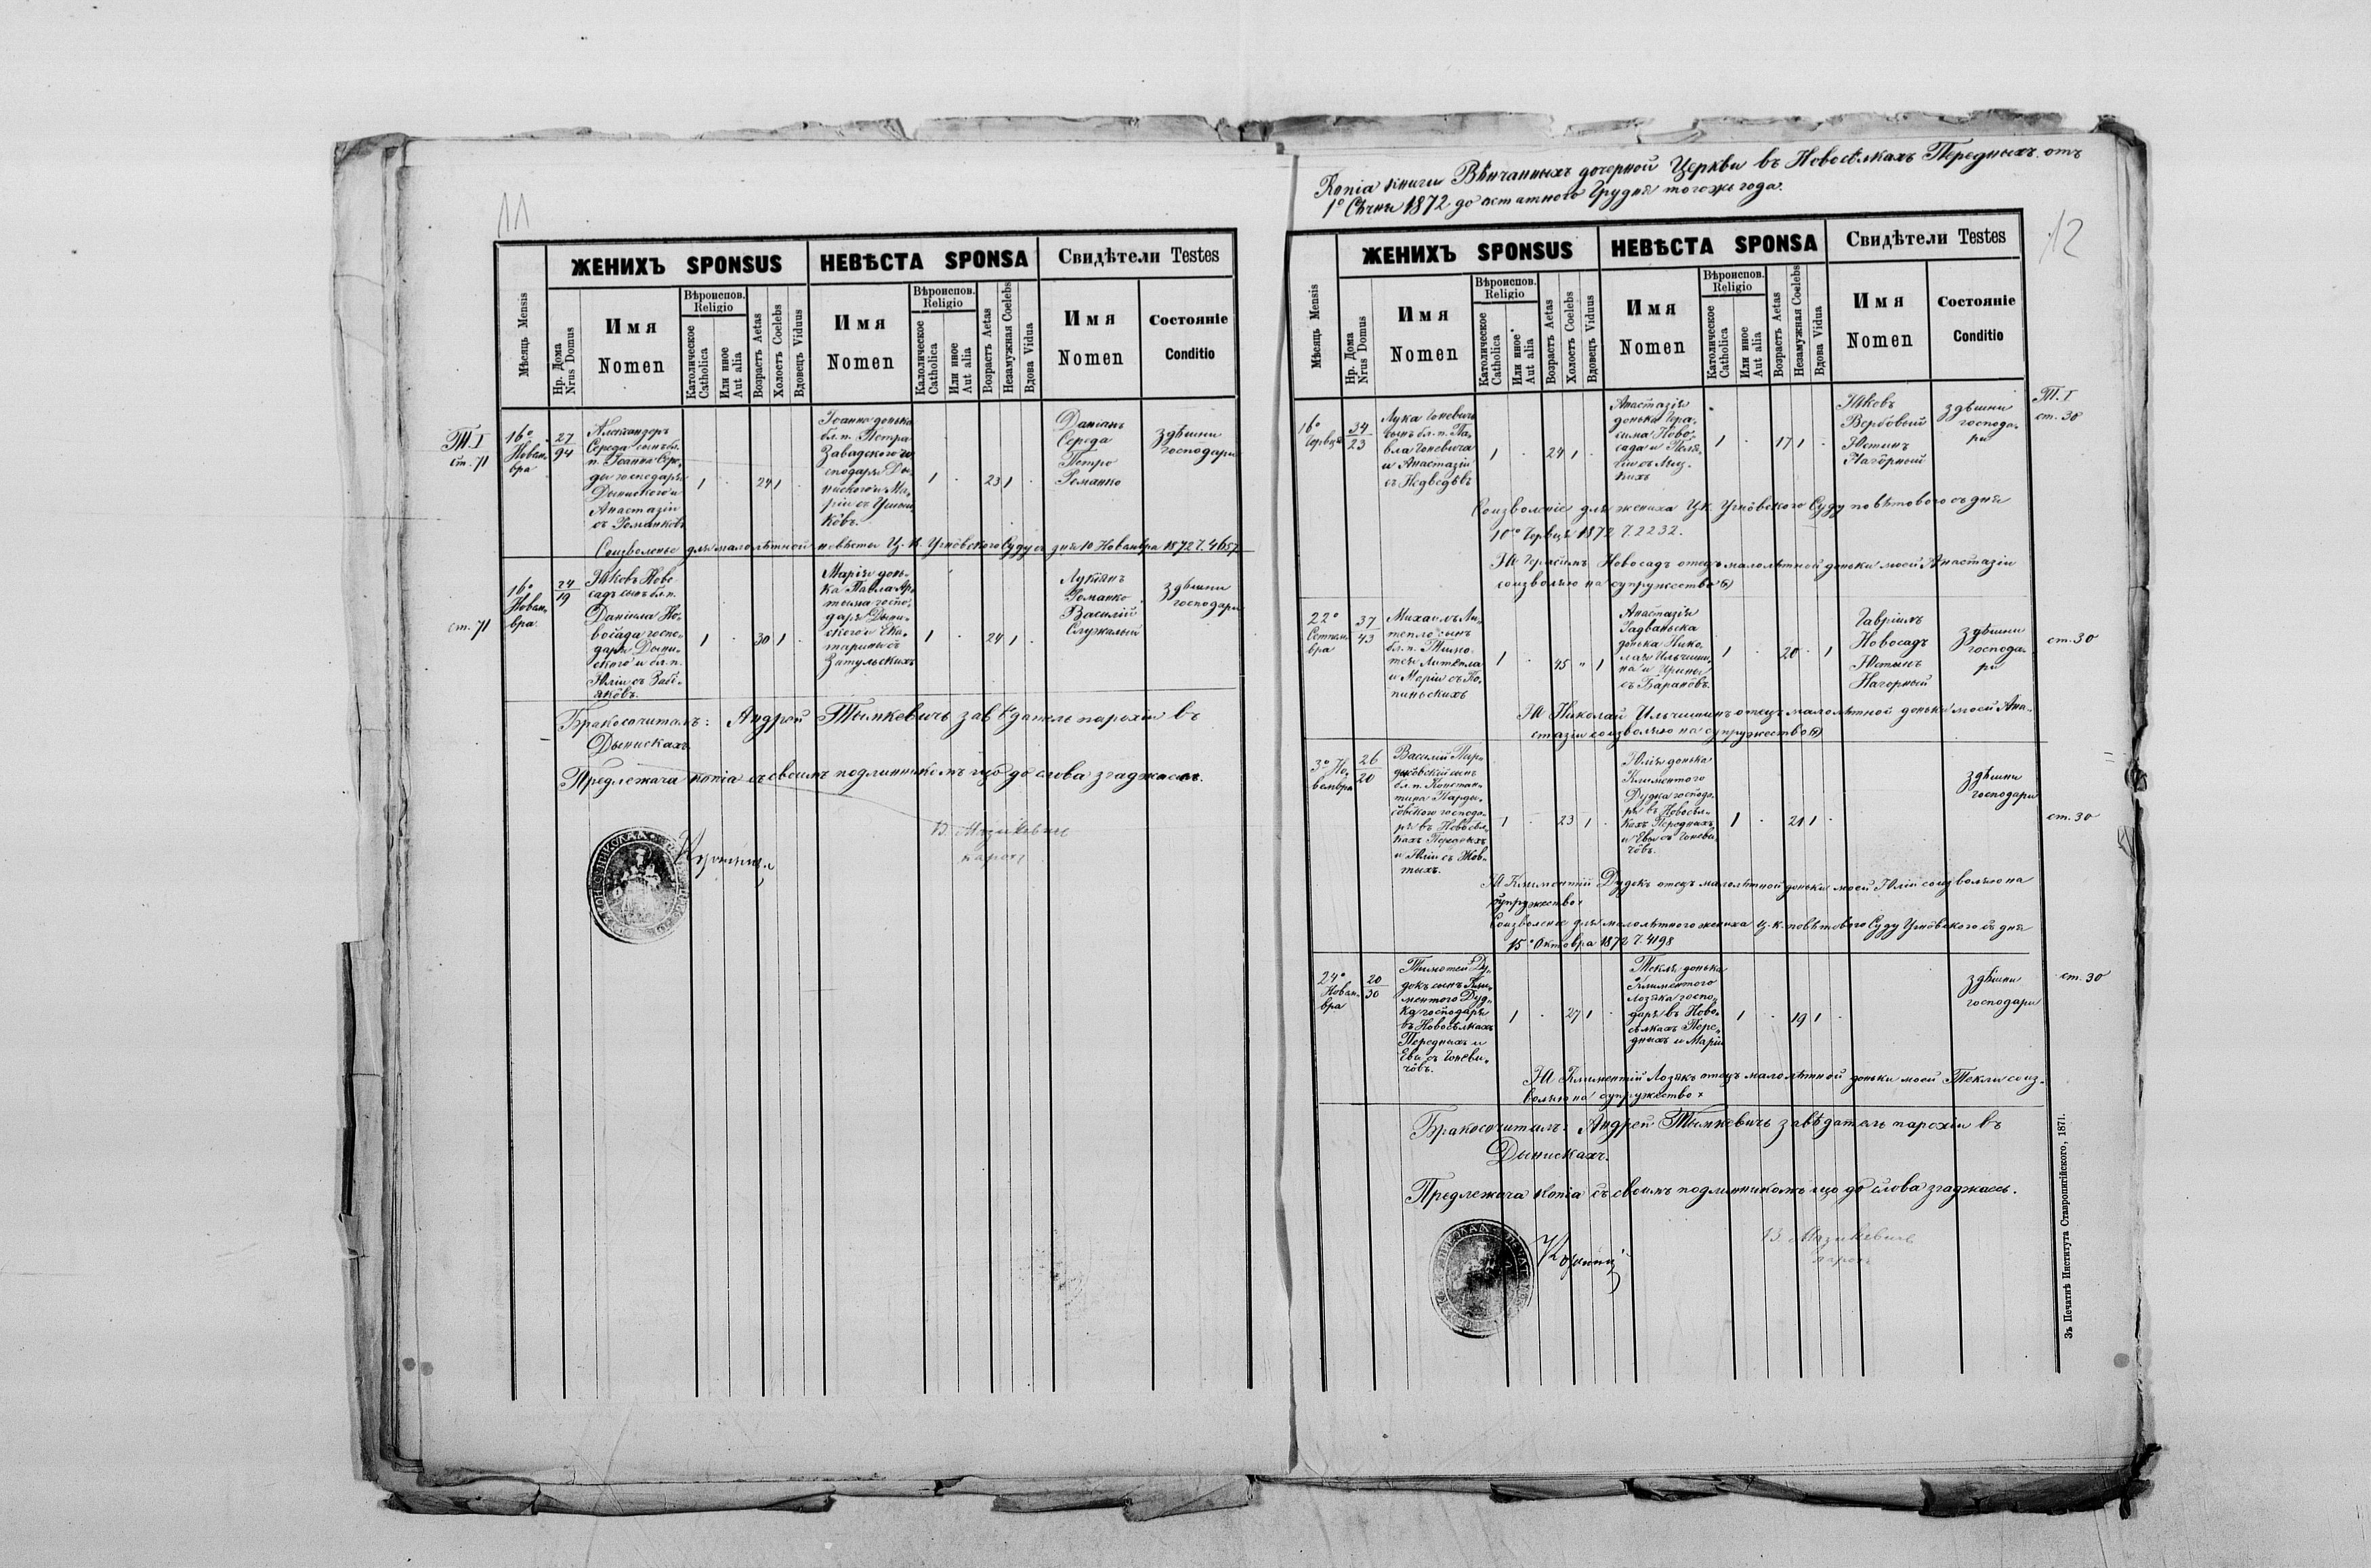 11
ЖЕНИХЪ SPONSUS
НЕВѢСТА SPONSA
Свидѣтели Testes
Мѣсяць Mensis
Нр. Дома
Nrus Domus
Имя
Nomen
Вѣроиспов.
Religio
Католическое
Catholica
Или иное
Aut alia
Возрастъ Aetas
Холостъ Coelebs
Вдовецъ Viduus
Имя
Nomen
Вѣроиспов.
Religio
Калолическое
Catholica
Или иное
Aut alia
Возрастъ Aetas
Незамужная Coelebs
Вдова Vidua
Имя
Nomen
Состояніе
Conditio
Т. I
ст. 71
16º
Новем-
вра
27
94
Александеръ
Середа сынъ бл.
п. Іоанна Сере-
ды господаря
Дыниского и
Анастазіи
съ Романковъ
1 · 24 1 ·
Іоанна донька
бл. п. Петра
Завадского го
сподаря Ды-
ниского и Ма-
ріи съ
ковъ
1 · 23 1 ·
Даніилъ
Середа
Петро
Романко
здѣшни
господари
Соизволенье для малолѣтной невѣсты Ц. К. Угнôвского Суду съ дня 10 Новембра 1872 Ч. 4657
ст. 71
16º
Новем-
вра
24
19
Яковъ Ново
садъ сынъ бл. п.
Даніила Но-
восада госпо-
даря Дыни-
ского и бл. п.
Юліи съ Заб-
яковъ
1 · 30 1 ·
Марія донь-
ка Павла Ар-
тыма госпо-
даря Дыни-
ского и Ека-
терины съ
Затульскихъ
1 · 24 1 ·
Лукіянъ
Романко
Василій
Служалый
здѣшни
господари
Бракосочиталъ: Андрей Тымкевичъ завѣдатель парохіи въ
Дынискахъ
Предлежача копіа съ своимъ подлинникомъ що до слова згаджаесь.
парох
Копіа книги Вѣнчанныхъ дочерной Церкви въ Новосѣлкахъ Передныхъ отъ
1º Сѣчня 1872 до остатного Грудня тогожъ года.
12
ЖЕНИХЪ SPONSUS
НЕВѢСТА SPONSA
Свидѣтели Testes
Мѣсяць Mensis
Нр. Дома
Nrus Domus
Имя
Nomen
Вѣроиспов.
Religio
Католическое
Catholica
Или иное
Aut alia
Возрастъ Aetas
Холостъ Coelebs
Вдовецъ Viduus
Имя
Nomen
Вѣроиспов.
Religio
Католическое
Catholica
Или иное
Aut alia
Возрастъ Aetas
Незамужная Coelebs
Вдова Vidua
Имя
Nomen
Состояніе
Conditio
16º
Червця
34
23
Лука Гоневичъ
сынъ бл. п. Па-
вла Гоневича
и Анастазіи
съ Недведѣвъ
1 · 24 1 ·
Анастазія
донька Гера-
сима Ново-
сада и Пела-
гіи съ
1 · 17 1 ·
Яковъ
Вербовый
Юстинъ
Нагôрный
здѣшни
господа-
ри
Т. I
ст. 30
Соизволеніе для жениха Ц. К. Угнôвского Суду повѣтового съ дня
10º Червця 1872 Ч. 2232.
Я Герасимъ Новосадъ отецъ малолѣтной доньки моей Анастазіи
соизволяю на супружество
22º
Септем-
вра
37
43
Михаилъ Ли-
тепло сынъ
бл. п. Тимо-
тея Литепла
и Маріи съ Ко-
пиньскихъ
1 · 45 " 1
Анастазія
Гадваньска
донька Нико-
лая Ильчиши-
на и Ирины
съ Баранôвъ
1 · 20 · 1
Гавріилъ
Новосадъ
Юстынъ
Нагорный
здѣшни
господа-
ри
ст. 30
Я Николай Ильчишинъ отецъ малолѣтной доньки моей Ана-
стазіи соизволяю на супружество
3º Но-
вемвра
26
20
Василій Пар-
дыовскій сынъ
бл. п. Констан-
тина Парды-
овского господа-
ря въ Новосѣл-
кахъ Передныхъ
и Юліи съ Жов-
тыхъ.
1 · 23 1 ·
Юлія донька
Климентого
Дудка господа-
ря въ Новосѣл-
кахъ Передныхъ
и Евы съ Гоневи-
чôвъ.
1 · 21 1 ·
здѣшни
господари
ст. 30
Я Климентій Дудокъ отецъ малолѣтной доньки моей Юліи соизволяю на
супружество
Соизволеніе для малолѣтного жениха Ц. К. повѣтового Суду Угнôвского съ дня
15º Октовра 1872 Ч. 4198
24º
Новем-
вра
20
30
Тимотей Ду-
докъ сынъ Кли-
ментого Дуд-
ка господаря
въ Новосѣлкахъ
Передныхъ и
Евы съ Гоневи-
чôвъ.
1 · 27 1 ·
Текля донька
Климентого
Лозяка госпо-
даря въ Ново-
сѣлкахъ Пере-
дныхъ и Маріи
1 · 19 1 ·
здѣшни
господари
ст. 30
Я Климентій Лозякъ отецъ малолѣтной доньки моей Текли соиз-
воляю на супружество +
Бракосочиталъ: Андрей Тымкевичъ завѣдатель парохіи въ
Дынискахъ.
Предлежача копіа съ своимъ подлинникомъ що до слова згаджаесь.
парох
Зъ Печатнѣ Института Ставропигійского, 1871.